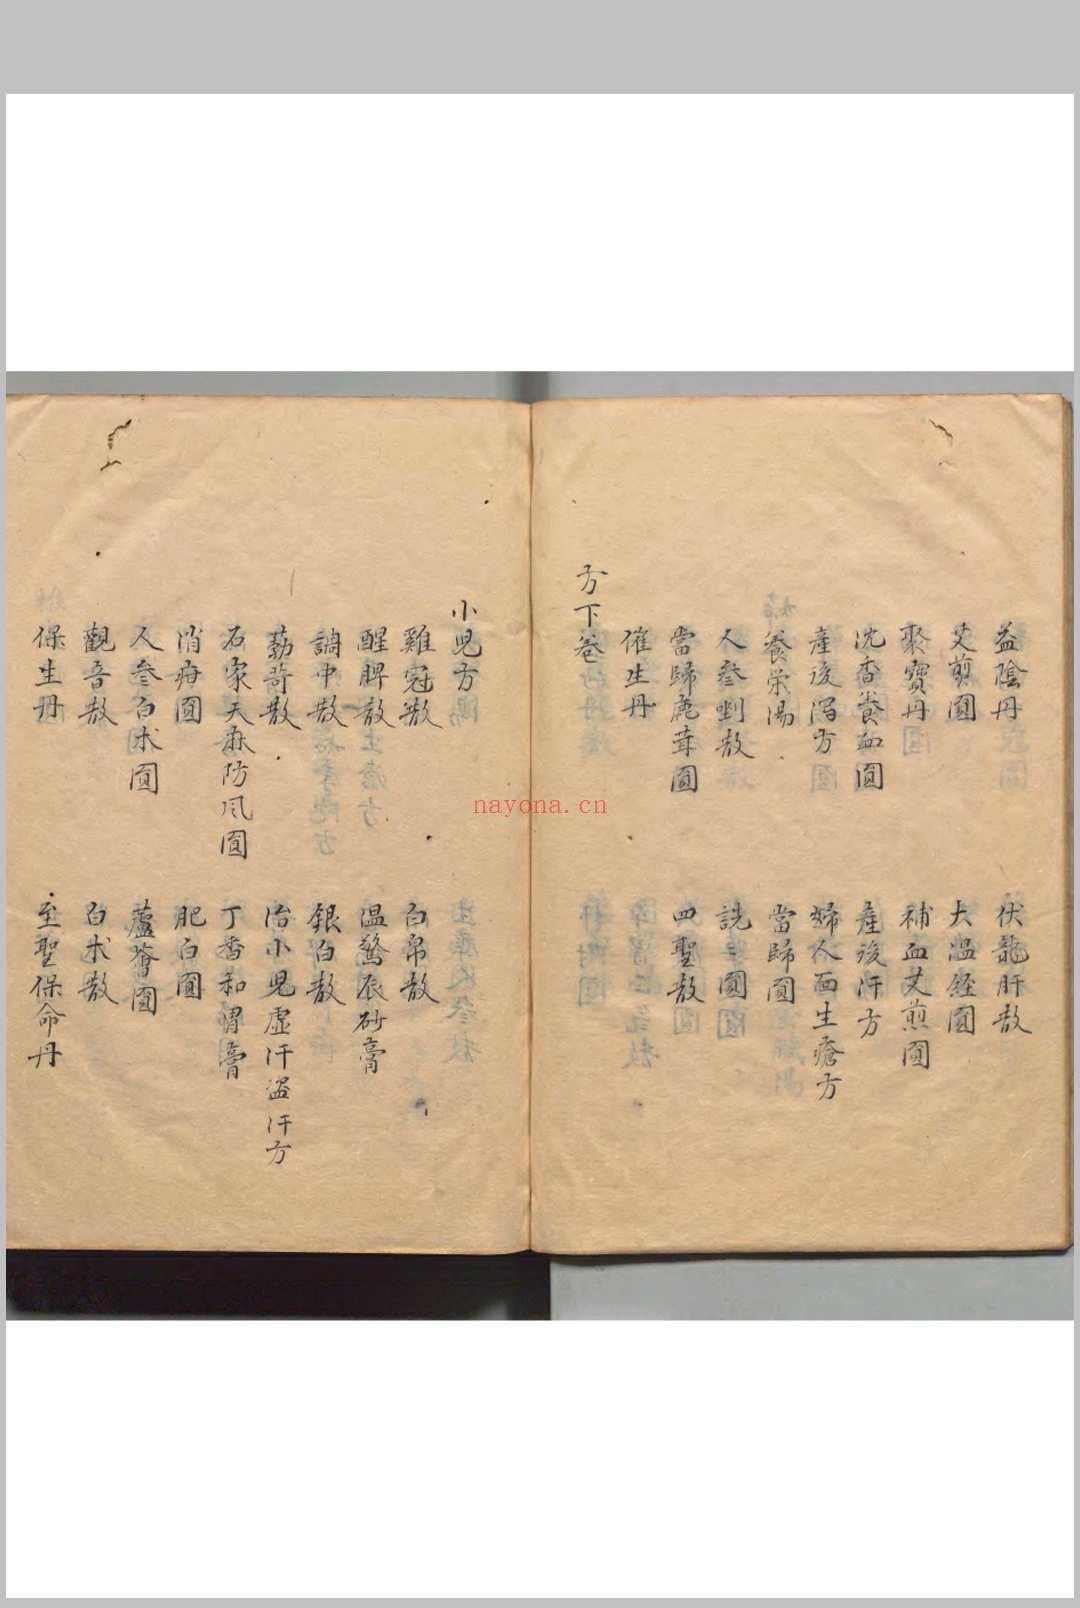 益陰丹　伏龍肝散
艾煎圓　大温經圓
聚寶丹　補血艾煎圓
沈香養血圓　産後汗方
産後瀉方　婦人面生瘡方
養榮湯　當歸圓
人參散　圓
當歸鹿茸圓　四聖散
催生丹
方下卷
小兒方
雞冠散　白帛散
醒脾散　温驚辰砂膏
調中散　銀白散
散　治小兒虚汗盗汗方
石家天麻防风圓　丁香和胃膏
消疳圓　肥白圓
人參白术圓　蘆薈圓
觀音散　白术散
保生丹　至聖保命丹
nayona.cn